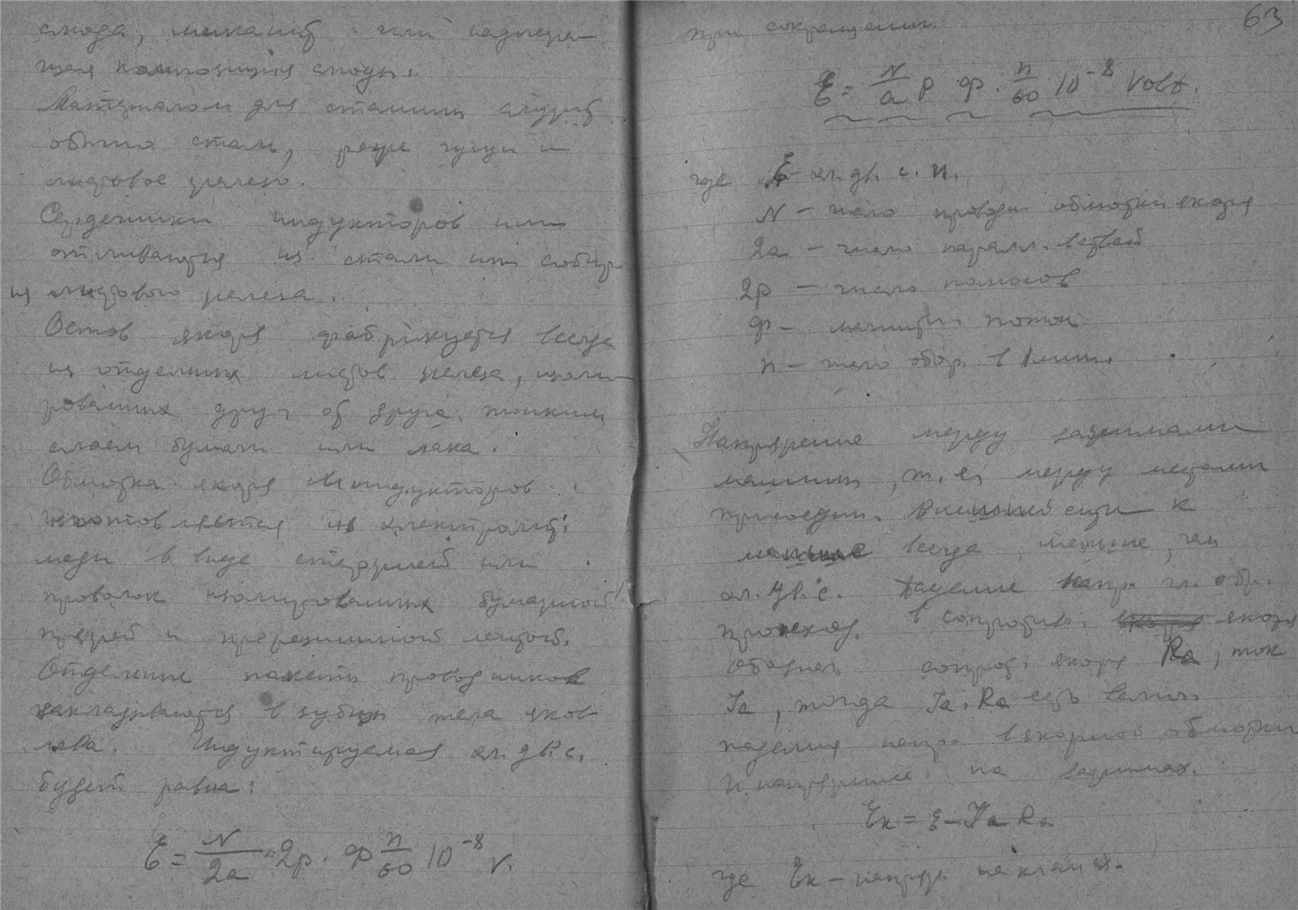 слюда, миканит или
композиция слюды.
Материалом для станины служит
обычно сталь, реже чугун и
листовое железо.
Сердечники индукторов или
отливаются из стали или
из листового железа.
Остов якоря фабрикуется всегда
из отдельных листов железа, изоли
рованных друг от друга тонким
слоем бумаги или лака.
Обмотка якоря индукторов
изготовляется из электролит.
меди в виде стержней или
проволок изолированных бумажной
пряжей и прорезиненной лентой.
Отдельные пакеты проводников
закладываются в зубцы тела яков
лева. Индуктируемая эл. дв. с.
будет равна:
E = N/2a · 2p · Ф n/60 10⁻⁸ V.
63
при сокращении
E = N/a p · Ф · n/60 10⁻⁸ Volt.
где E – эл. дв. с. и.
N – число провод. обмотки якоря
2a – число паралл. ветвей
2p – число полюсов
Ф – магнитн. поток
n – число обор. в 1 мин.
Напряжение между зажимами
машины, т. е. между местами
присоедин. внешней цепи к
машине всегда меньше, чем
эл. дв. с. Падение напр. гл. обр.
происход. в сопротив. якоря
Обознач. сопрот. якоря Ra, ток
Ja, тогда Ja · Ra есть велич.
падения напр. в якорной обмотки
и напряжение на зажимах.
Eк = E – Ja Ra
где Eк – напряж. на клеммах.